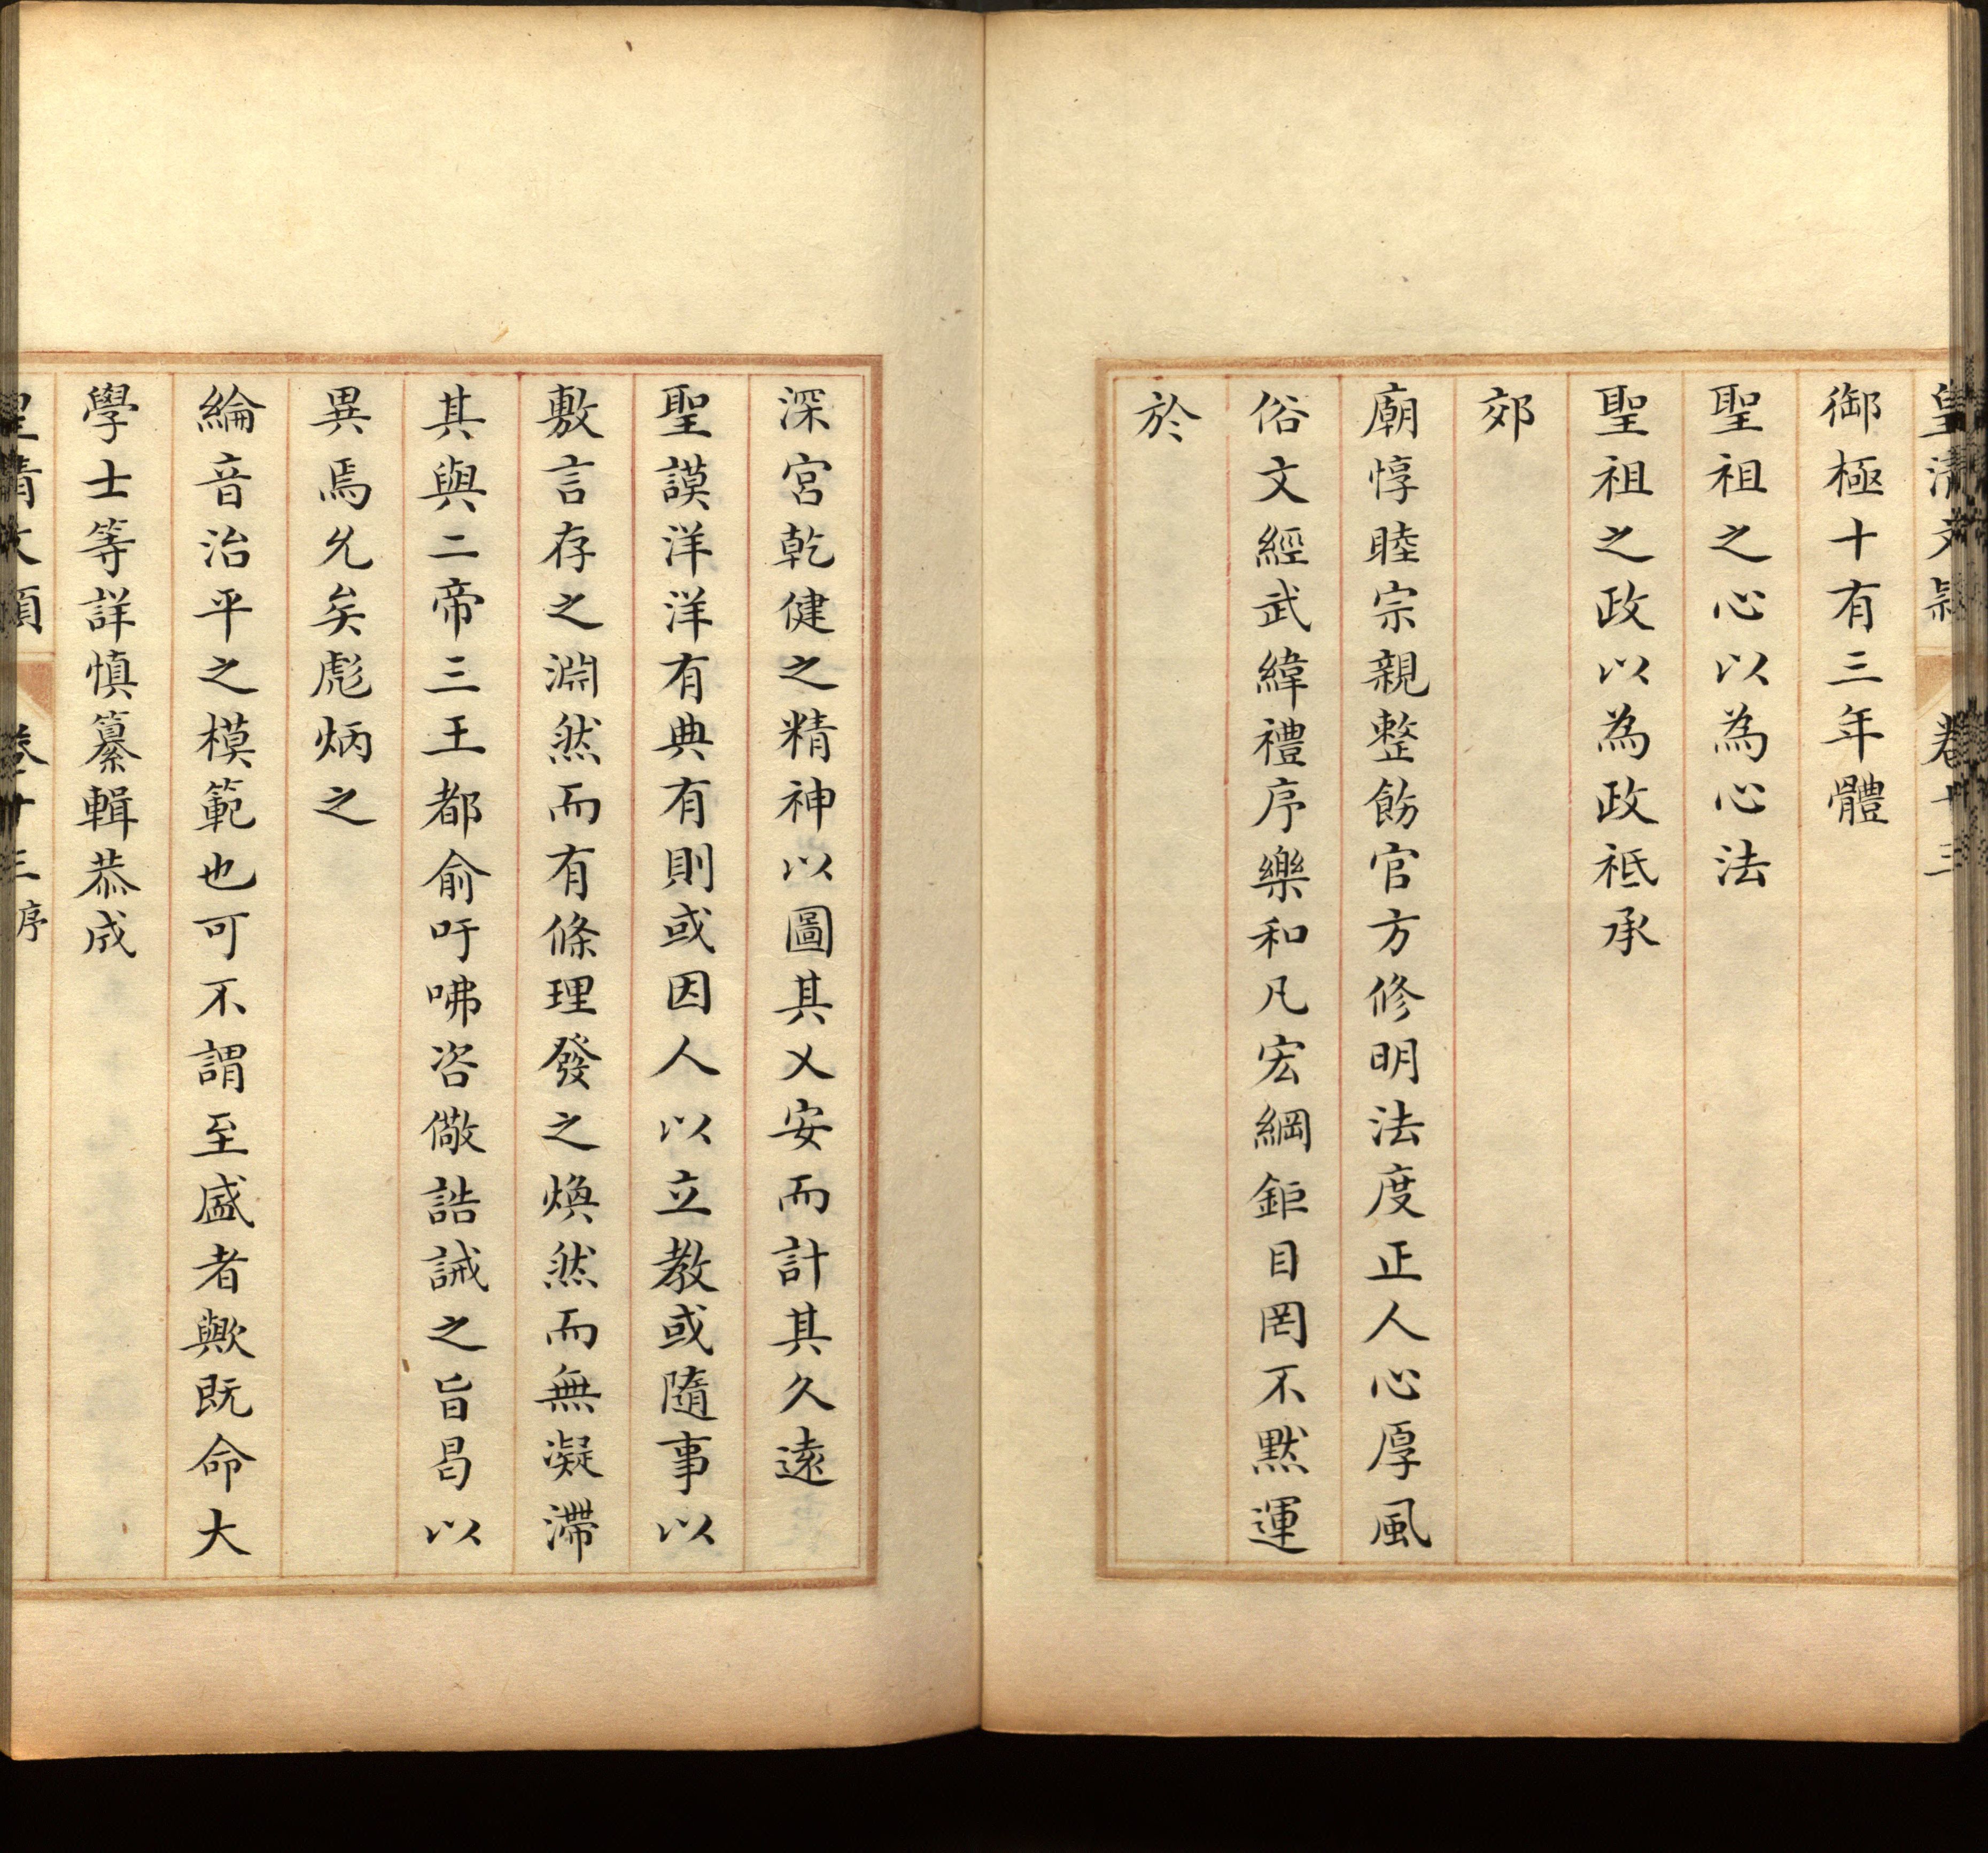 皇清文穎 卷十三
御極十有三年體
聖祖之心以為心法
聖祖之政以為政祗承
郊
廟惇睦宗親整飭官方修明法度正人心厚風
俗文經武緯禮序樂和凡宏綱鉅目罔不黙運
於
深宮乾健之精神以圖其乂安而計其久遠
聖謨洋洋有典有則或因人以立教或隨事以
敷言存之淵然而有條理發之煥然而無凝滯
其與二帝三王都俞吁咈咨儆誥誡之旨曷以
異焉允矣彪炳之
綸音治平之模範也可不謂至盛者歟既命大
學士等詳慎纂輯恭成
皇清文穎 卷十三 序